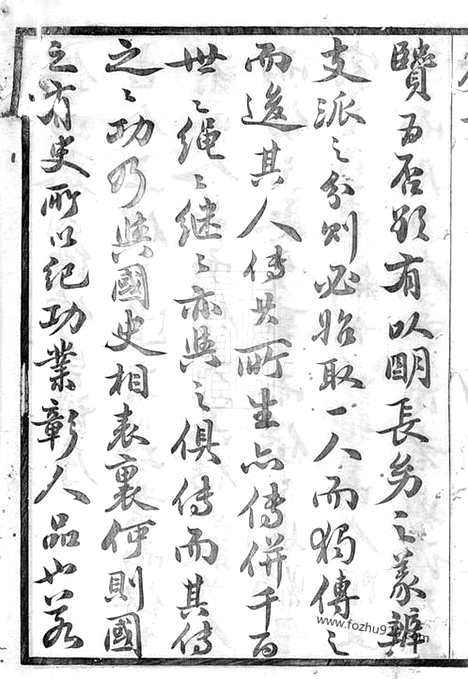 贤否能有以明長幼之義辨
支派之分則必始取一人而獨傳之
而逡其人傳其所生亦傳併千百
世〻繩〻継〻亦與之俱傳而其傳
之〻功乃與國史相表裏何則國
之有史所以紀功業彰人品也若
www.fozhu9